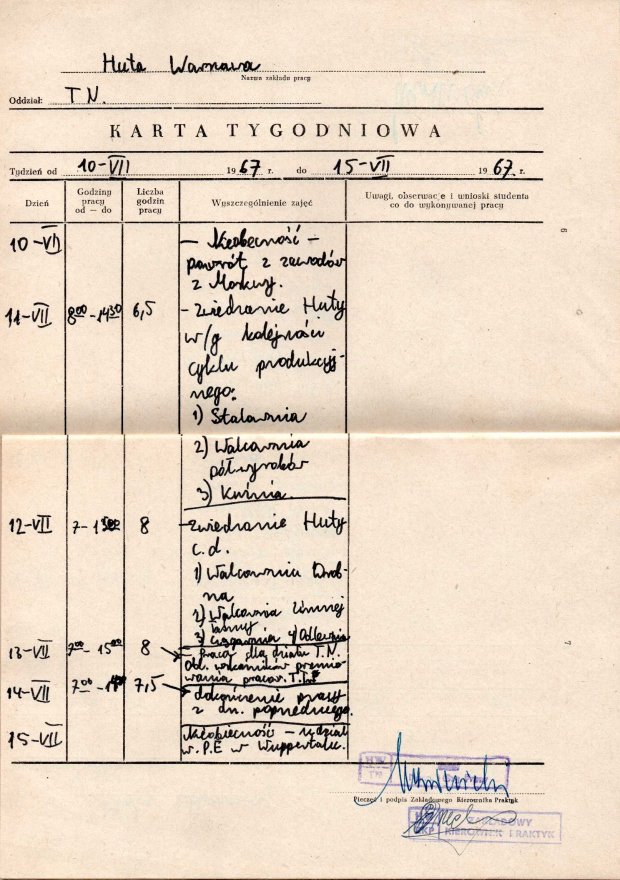 Huta Warszawa
Nazwa zakładu pracy
Oddział: T.N.
KARTA TYGODNIOWA
Tydzień od 10-VII 1967 r. do 15-VII 1967 r.
Dzień
Godziny pracy od — do
Liczba godzin pracy
Wyszczególnienie zajęć
Uwagi, obserwacje i wnioski studenta co do wykonywanej pracy
10-VII
- Nieobecność -
powrót z zawodów
z Moskwy.
11-VII 8⁰⁰-14³⁰ 6,5 - Zwiedzanie Huty
w/g kolejności
cyklu produkcyj-
nego:
1) Stalownia
2) Walcownia
półwyrobów
3) Kuźnia
12-VII 7-15⁰⁰ 8 - Zwiedzanie Huty
c.d.
1) Walcownia Drob-
na
2) Walcownia Zimnej
Taśmy
3) Ciągarnia 4) Odlewnia
13-VII 7⁰⁰-15⁰⁰ 8 - praca dla działu T.N.
Obl. wskaźników premio-
wania pracow.
14-VII 7⁰⁰- 7,5 - dokończenie pracy
z dn. poprzedniego.
15-VII Nieobecność - udział
w P.E w Wuppertalu.
Pieczęć i podpis Zakładowego Kierownika Praktyk
ZAKŁADOWY
KIEROWNIK PRAKTYK